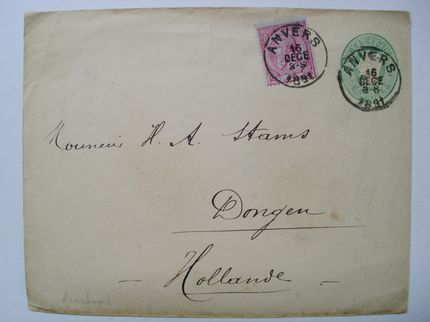 ANVERS
16
DECE
8-S
1891
ANVERS
16
DECE
8-S
1891
Monsieur H. A. Stams
Dongen
Hollande